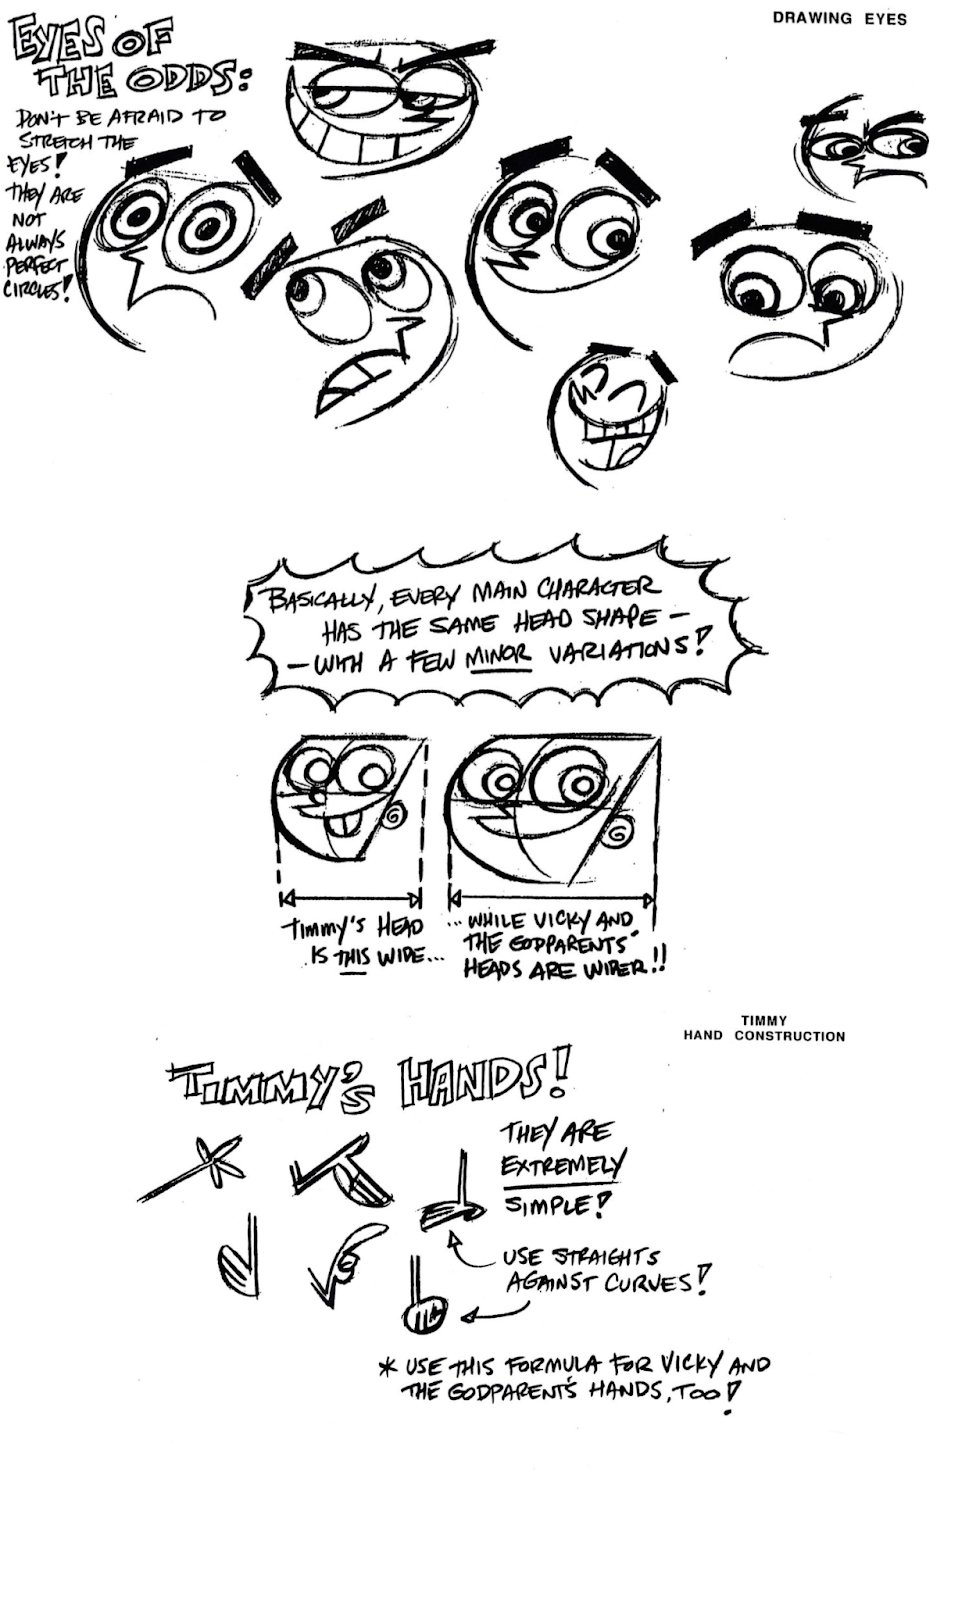 DRAWING EYES
EYES OF
THE ODDS:
DON'T BE AFRAID TO
STRETCH THE
EYES!
THEY ARE
NOT
ALWAYS
PERFECT
CIRCLES!
BASICALLY, EVERY MAIN CHARACTER
HAS THE SAME HEAD SHAPE —
— WITH A FEW MINOR VARIATIONS!
TIMMY'S HEAD
IS THIS WIDE...
...WHILE VICKY AND
THE GODPARENTS'
HEADS ARE WIDER!!
TIMMY
HAND CONSTRUCTION
TIMMY'S HANDS!
THEY ARE
EXTREMELY
SIMPLE!
USE STRAIGHTS
AGAINST CURVES!
* USE THIS FORMULA FOR VICKY AND
THE GODPARENT'S HANDS, TOO!